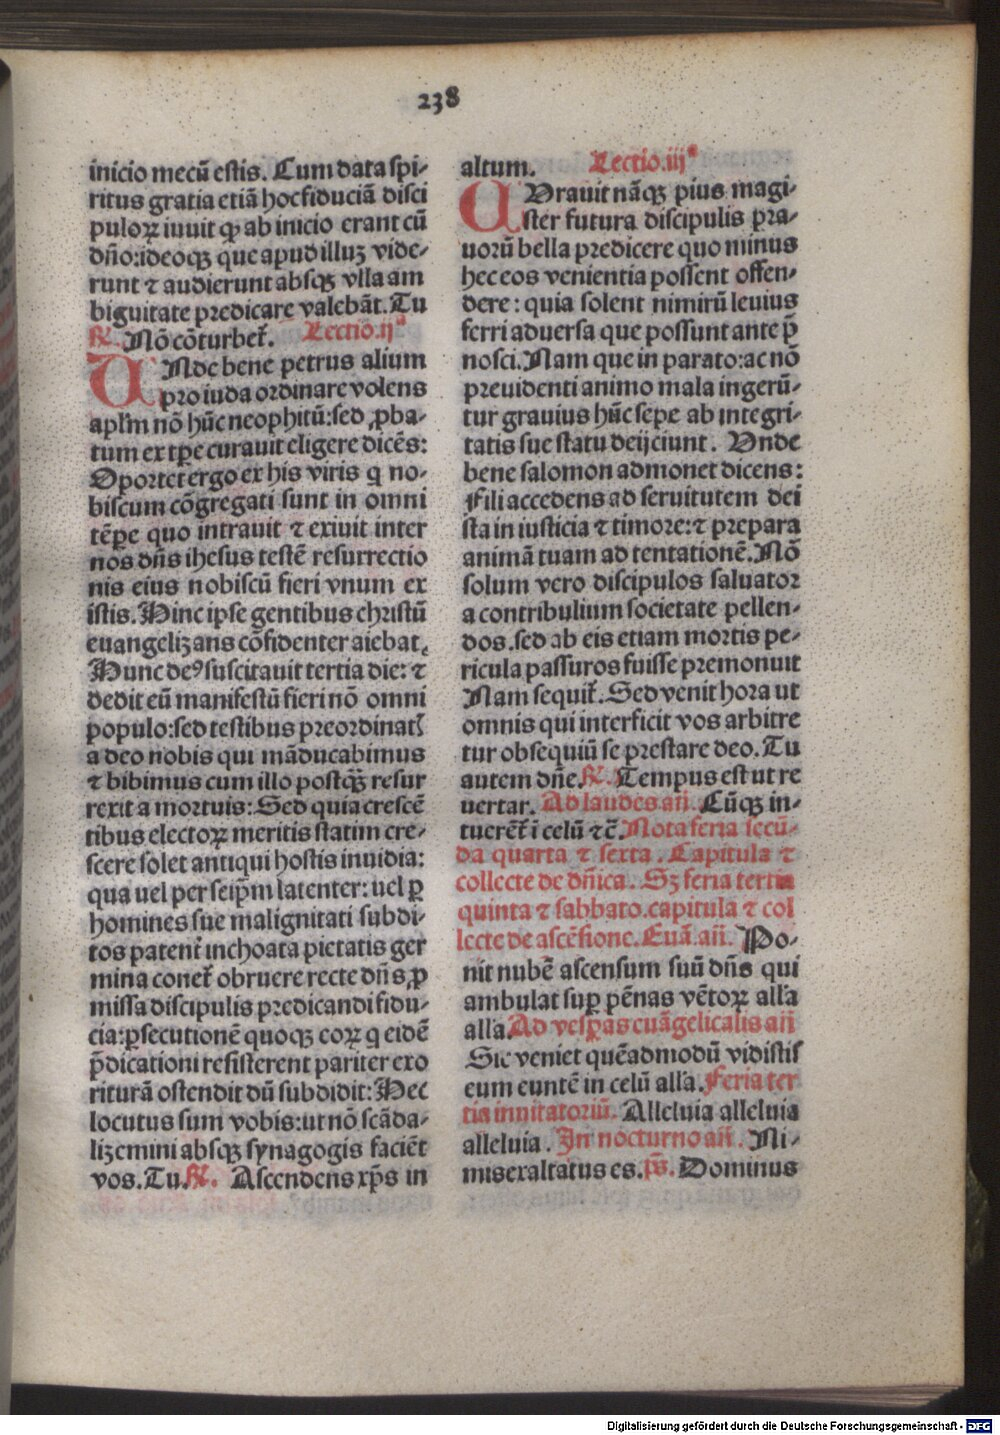 238
inicio mecū estis. Cum data spi-
ritus gratia etiā hoc fiduciā disci
puloꝝ iuuit ꝙ ab inicio erant cū
dn̄o:ideoqꝫ que apud illuꝫ vide-
runt ⁊ audierunt absqꝫ vlla am
biguitate predicare valebāt. Tu
℟. Nō cōturbet᷑. Lectio.ijᵃ
UNde bene petrus alium
pro iuda ordinare volens
apl'm nō hūc neophitū:sed ꝓba-
tum ex tꝑe curauit eligere dicēs:
Oportet ergo ex his viris q no-
biscum cōgregati sunt in omni
tēꝑe quo intrauit ⁊ exiuit inter
nos dn̄s ihesus testē resurrectio
nis eius nobiscū fieri vnum ex
istis. Hinc ipse gentibus christū
euangelizans cōfidenter aiebat.
Hunc deꝰ suscitauit tertia die: ⁊
dedit eū manifestū fieri nō omni
populo:sed testibus preordinatꝭ
a deo nobis qui māducabimus
⁊ bibimus cum illo postqꝫ̄ resur
rexit a mortuis: Sed quia crescē
tibus electoꝝ meritis statim cre-
scere solet antiqui hostis inuidia:
qua uel per seip̄m latenter: uel ꝑ
homines sue malignitati subdi-
tos patent᷑ inchoata pietatis ger
mina conet᷑ obruere recte dn̄s ꝓ
missa discipulis predicandi fidu-
cia:ꝑsecutionē quoqꝫ eoꝝ q eidē
p̄dicationi resisterent pariter exo
riturā ostendit dū subdidit: Hec
locutus sum vobis:ut nō scāda-
lizemini absqꝫ synagogis faciēt
vos. Tu. ℟. Ascendens xp̄s in
altum. Lectio.iijᵃ
CUrauit nāqꝫ pius magi-
ster futura discipulis pra-
uorū bella predicere quo minus
hec eos venientia possent offen-
dere: quia solent nimirū leuius
ferri aduersa que possunt ante p̄
nosci. Nam que in parato:ac nō
preuidenti animo mala ingerū-
tur grauius hūc sepe ab integri-
tatis sue statu deijciunt. Unde
bene salomon admonet dicens:
Fili accedens ad seruitutem dei
sta in iusticia ⁊ timore:⁊ prepara
animā tuam ad tentationē. Nō
solum vero discipulos saluator
a contribulium societate pellen-
dos.sed ab eis etiam mortis pe-
ricula passuros fuisse premonuit
Nam sequit᷑. Sed venit hora ut
omnis qui interficit vos arbitre
tur obsequiū se prestare deo. Tu
autem dn̄e. ℟. Tempus est ut re
uertar. Ad laudes an̄. Cūqꝫ in-
tuerēt᷑ ī celū ⁊c̄. Nota feria secū-
da quarta ⁊ sexta. Capitula ⁊
collecte de dn̄ica. Sꝫ feria tertia
quinta ⁊ sabbato.capitula ⁊ col
lecte de ascēsione. Euā. an̄. Po-
nit nubē ascensum suū dn̄s qui
ambulat suꝑ pēnas vētoꝝ all'a
all'a. Ad vesꝑas euāgelicalis an̄
Sic veniet quēadmodū vidistis
eum euntē in celū all'a. Feria ter
tia inuitatoriū. Alleluia alleluia
alleluia. In nocturno an̄. Ni-
mis exaltatus es. ps̄. Dominus
Digitalisierung gefördert durch die Deutsche Forschungsgemeinschaft - DFG